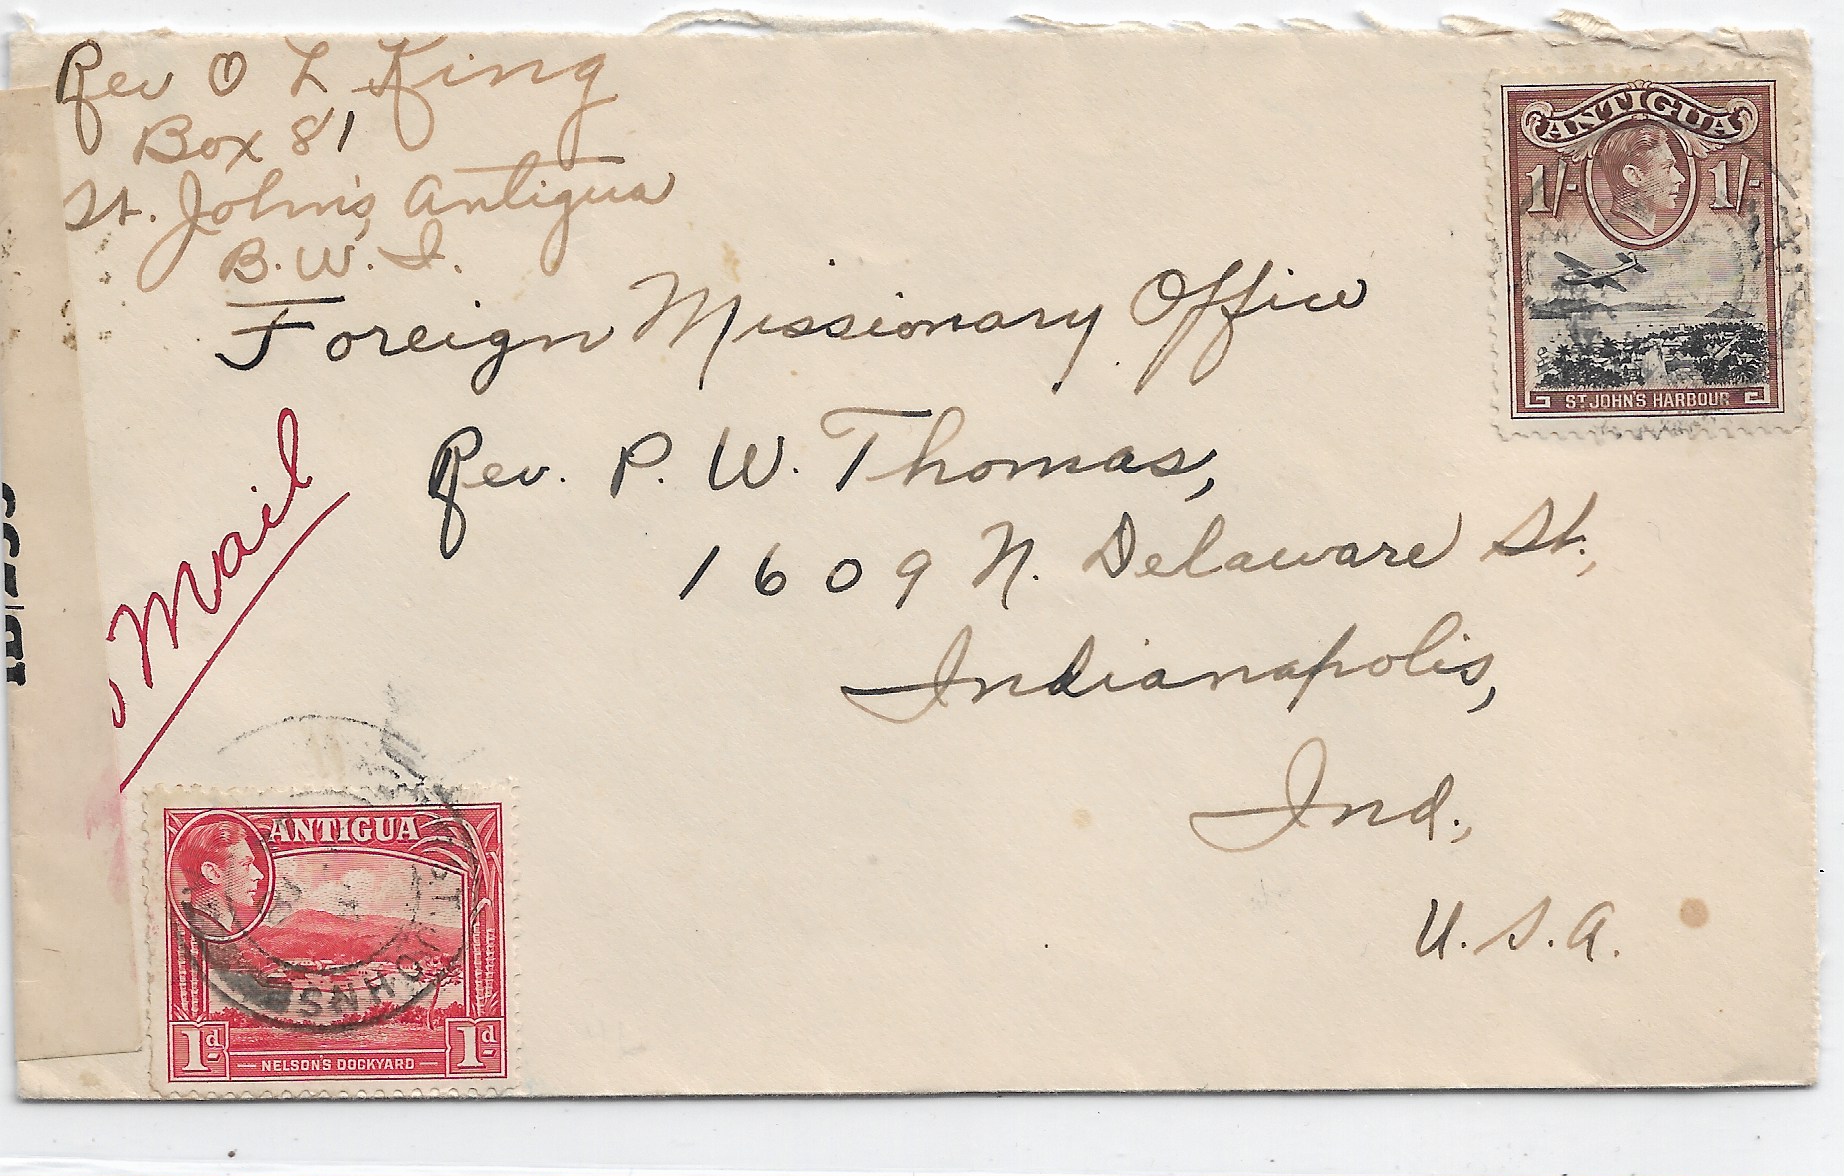 Rev O L King
Box 81
St. John's, Antigua
B. W. I.
Foreign Missionary Office
Rev. P. W. Thomas,
1609 N. Delaware St.,
Indianapolis,
Ind.,
U. S. A.
Mail
ANTIGUA
1/- 1/-
ST JOHN'S HARBOUR
ANTIGUA
1d 1d
NELSON'S DOCKYARD
ST. JOHNS